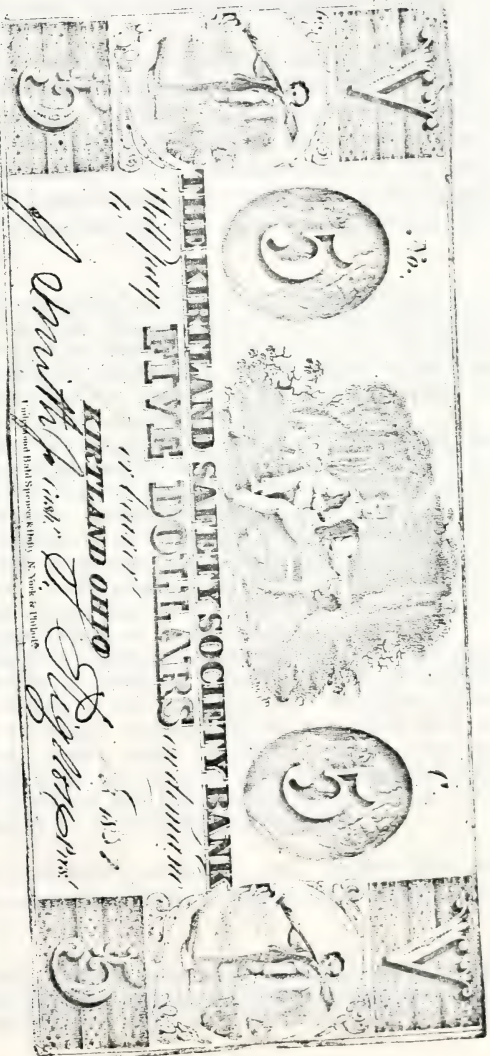 V 5 No. 5 V
THE KIRTLAND SAFETY SOCIETY BANK
Will Pay FIVE DOLLARS on demand
to
KIRTLAND OHIO
5 J Smith Cash. S Rigdon Pres. 5
Underwood Bald Spencer & Hufty, N. York & Philad.